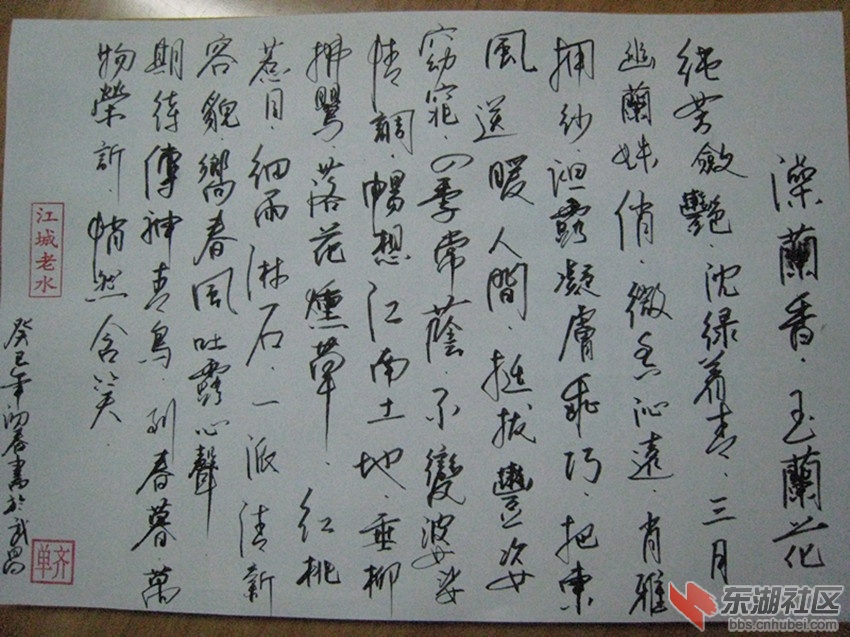 澡蘭香·玉蘭花
純芳斂艷·沈绿着青·三月
幽蘭妹俏·微香沁遠·肖雅
拥紗·袒露凝膚乖巧·把東
風送暖人間·挺拔豐姿
窈窕·四季常蔭·不變婆娑
情調·暢想江南土地·垂柳
拂鶯·落花燻草·红桃
惹目·细雨淋石·一派清新
容貌·嚮春风吐露心聲
期待傳神青鳥·到春暮萬
物榮訢·悄然含笑·
江城老水
癸巳年初春書於武昌
齐单
东湖社区
bbs.cnhubei.com